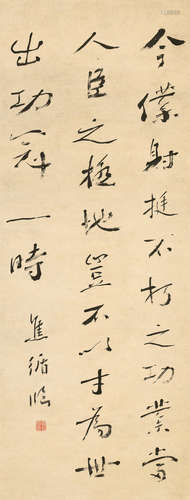 今僕射挺不朽之功業當
人臣之極地豈不以才為世
出功冠一時
焦循臨